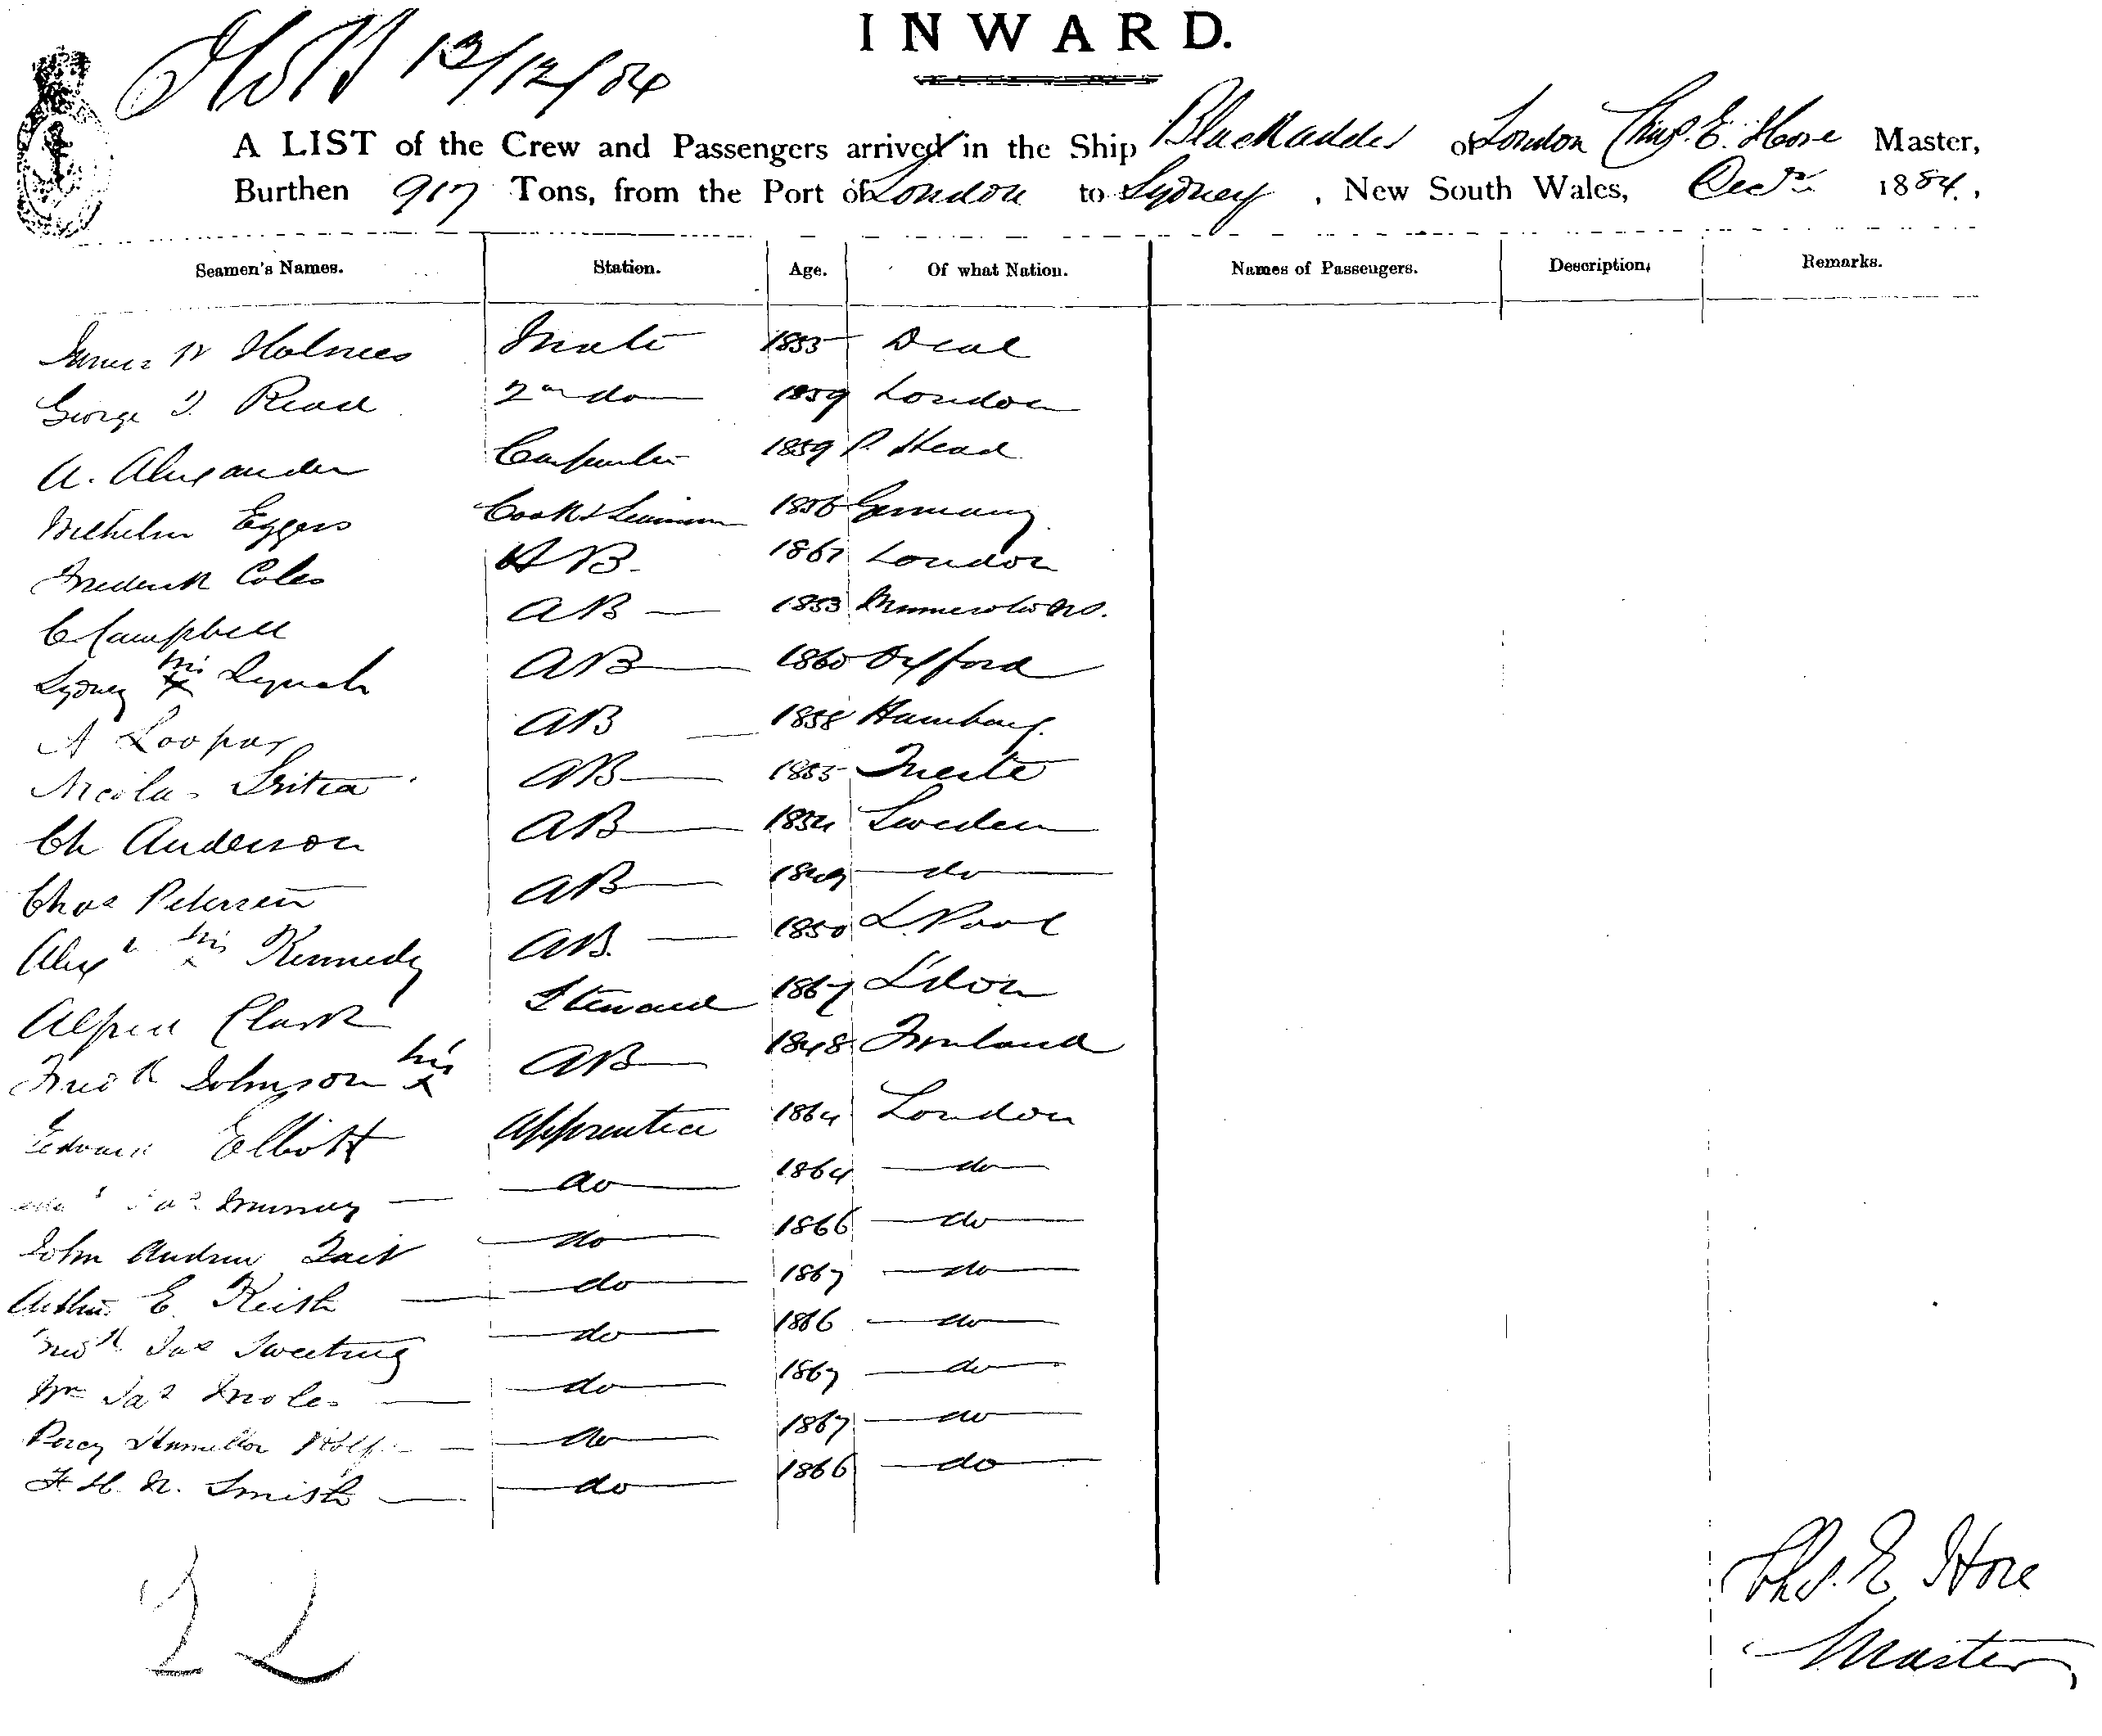 INWARD.
13/12/84
A LIST of the Crew and Passengers arrived in the Ship Blackadder of London Thos. E. Hore Master,
Burthen 917 Tons, from the Port of London to Sydney, New South Wales, Decr 1884.,
Seamen's Names. Station. Age. Of what Nation. Names of Passengers. Description, Remarks.
James W Holmes Mate 1855 Deal
George J. Read 2nd do 1859 London
A. Alexander Carpenter 1859 P. Head
Wilhelm Eggers Cook & 1856 Germany
Frederick Coles AB. 1861 London
C Campbell AB 1853
Sydney his x Lynch AB 1860 Oxford
A Loopar AB 1858 Hamburg.
Nicolas AB 1855 Trieste
Ch Anderson AB 1854 Sweden
Chas Petersen AB 1849 do
Alexr his x Kennedy AB. 1850 L.Pool
Alfred Clark Steward 1867 L'don
Fredk Johnson his x AB 1848 Finland
Edward Elliott Apprentice 1864 London
Jas Murray do 1864 do
John Andrew Tait do 1866 do
Arthur E. Keith do 1867 do
Fredk Jas Sweeting do 1866 do
Wm Jas Moles do 1867 do
Percy Hamilton Rolfe do 1867 do
F. H. N. Smith do 1866 do
22
Thos. E. Hore
Master